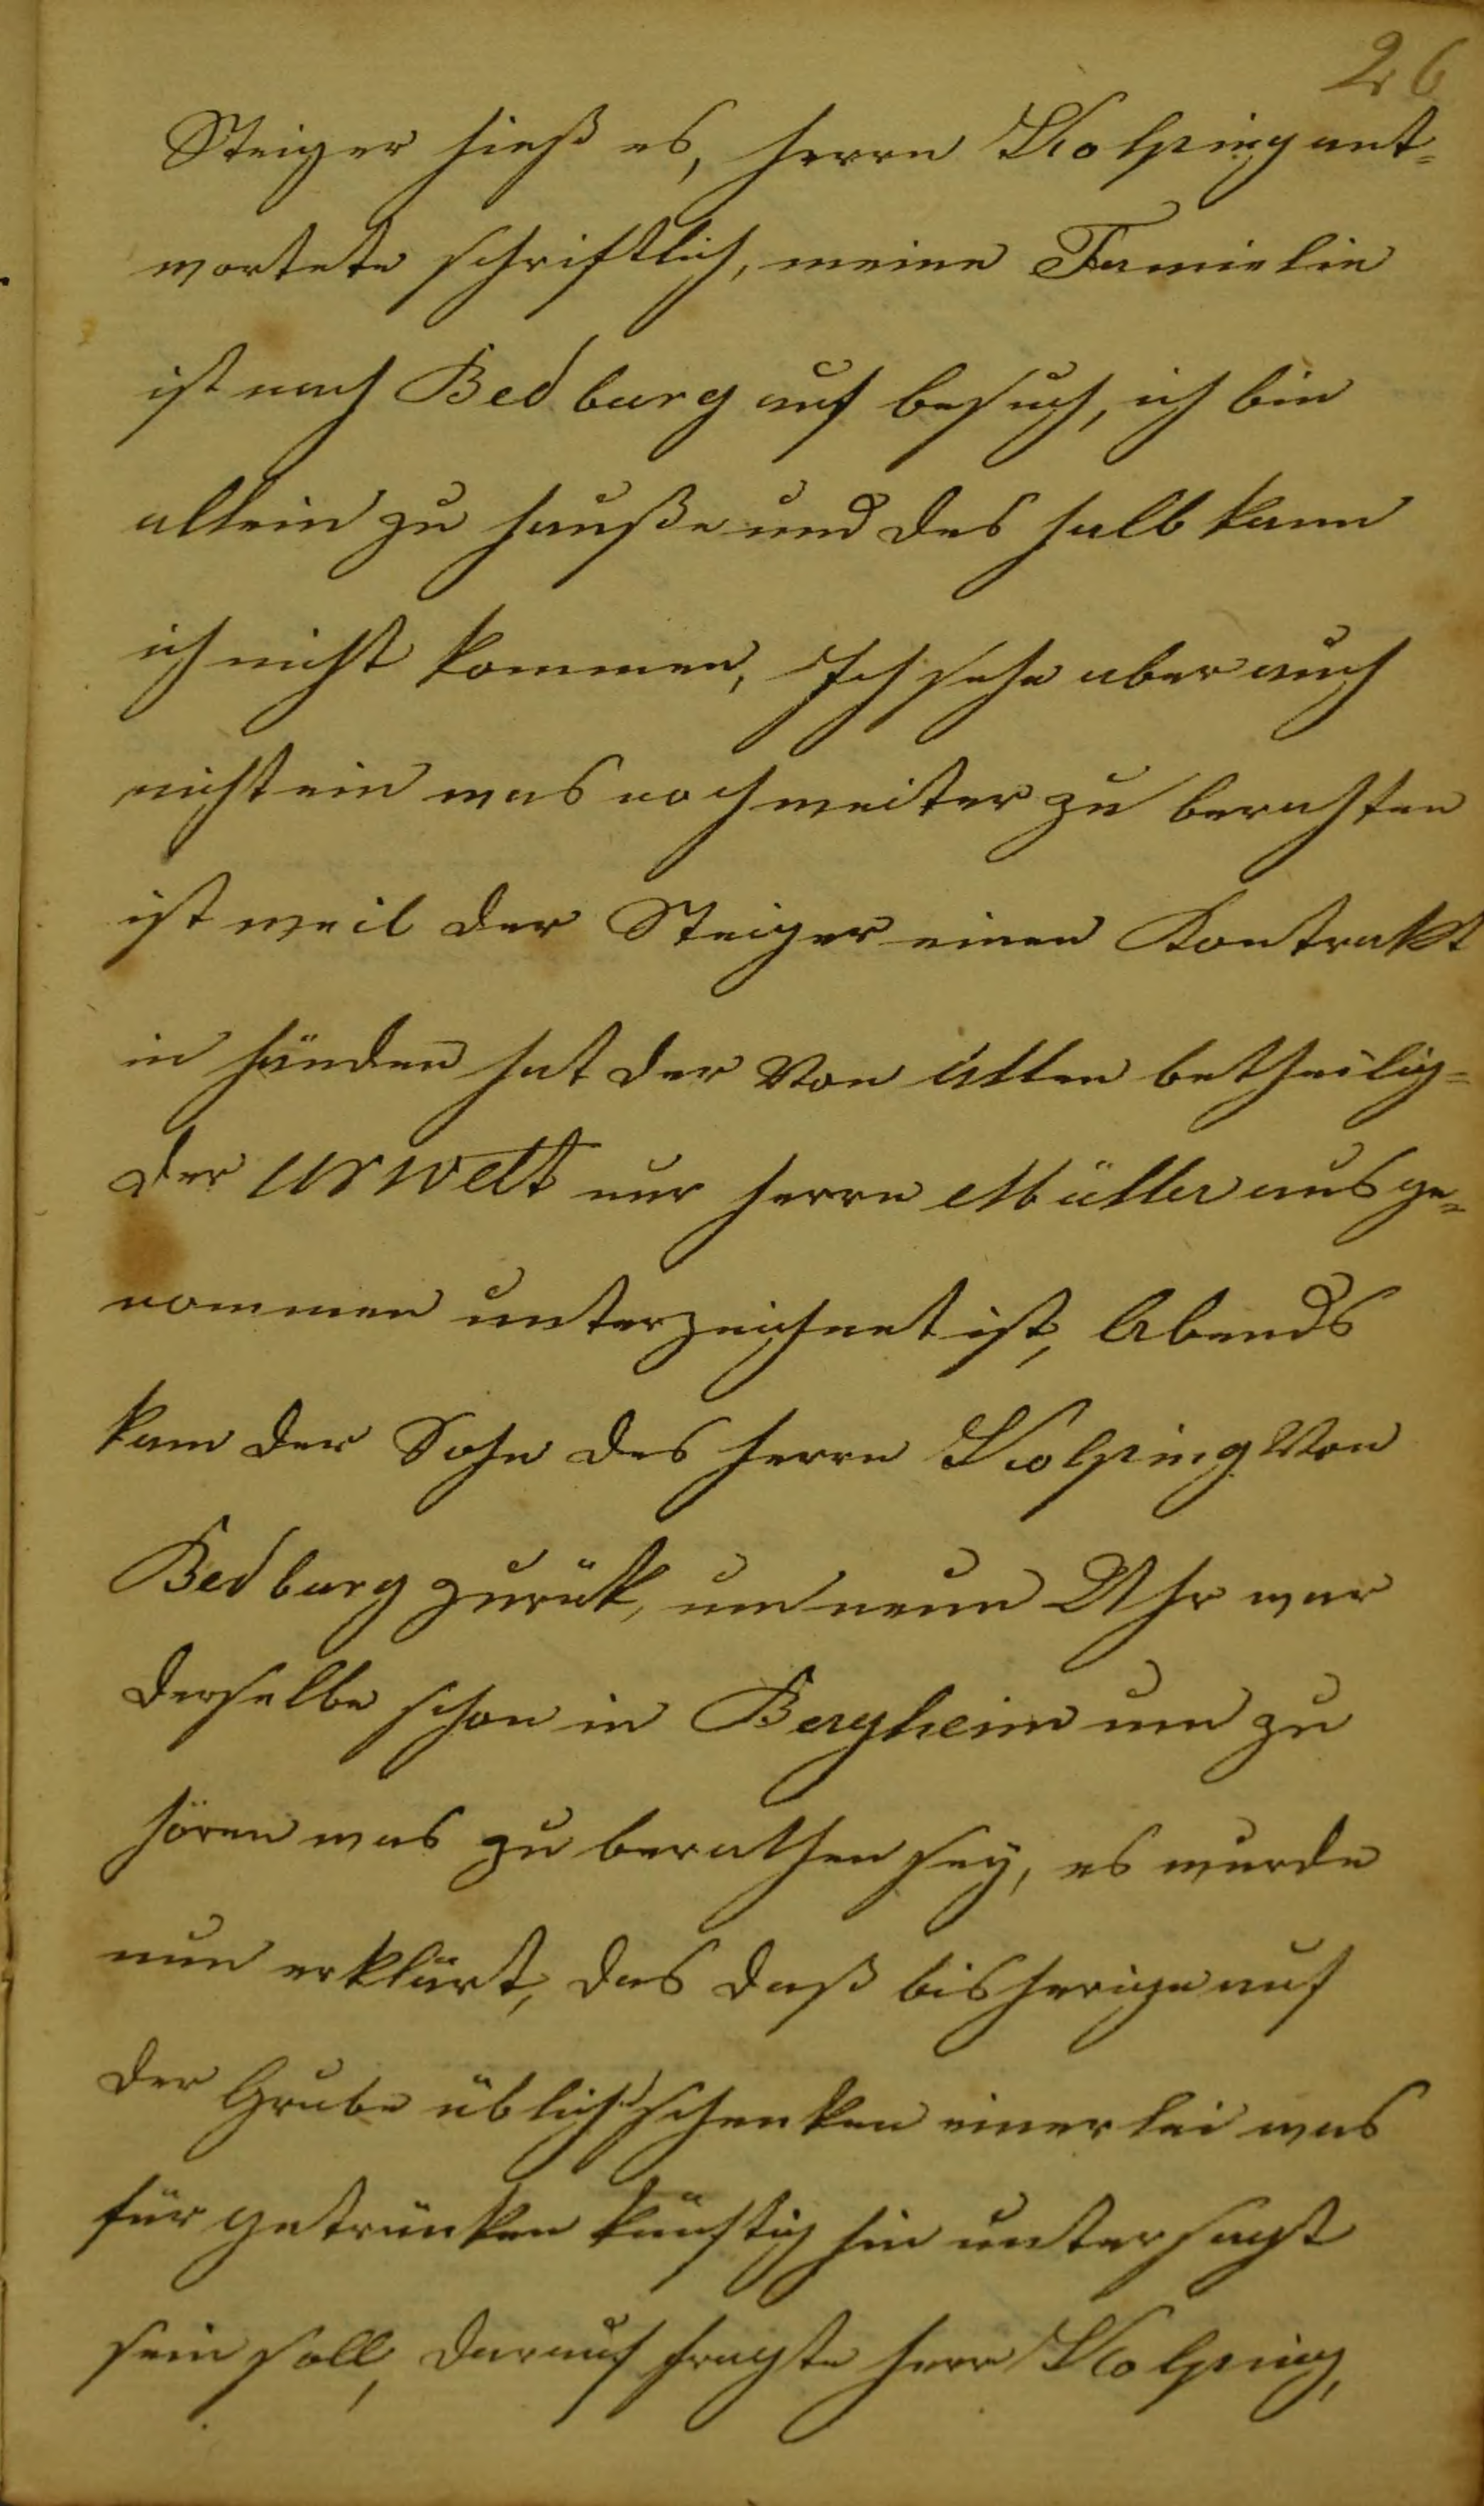 26
Steiger hieß es, herrn Kolping ant=
wortete schriftlich, meine Famielie
ist nach Bedburg auf besuch, ich bin
allein zu hauße und des halb kann
ich nicht kommen, Ich sehe aber auch
nicht ein was noch weiter zu berathen
ist weil der Steiger einen Kontrakt
in händen hat der Von Allen betheilig=
der Urwelt nur herrn Müller ausge=
nommen unterzeichnet ist, Abends
kam der Sohn des herrn Kolping Von
Bedburg zurük, um neun Uhr war
derselbe schon in Bergheim um zu
hören was zu berathen sey, es wurde
nun erklärt, das daß bisherige auf
der Grube üblich schenken einerlei was
für getränken künftig hin untersagt
sein soll, darauf fragte herr Kolping,